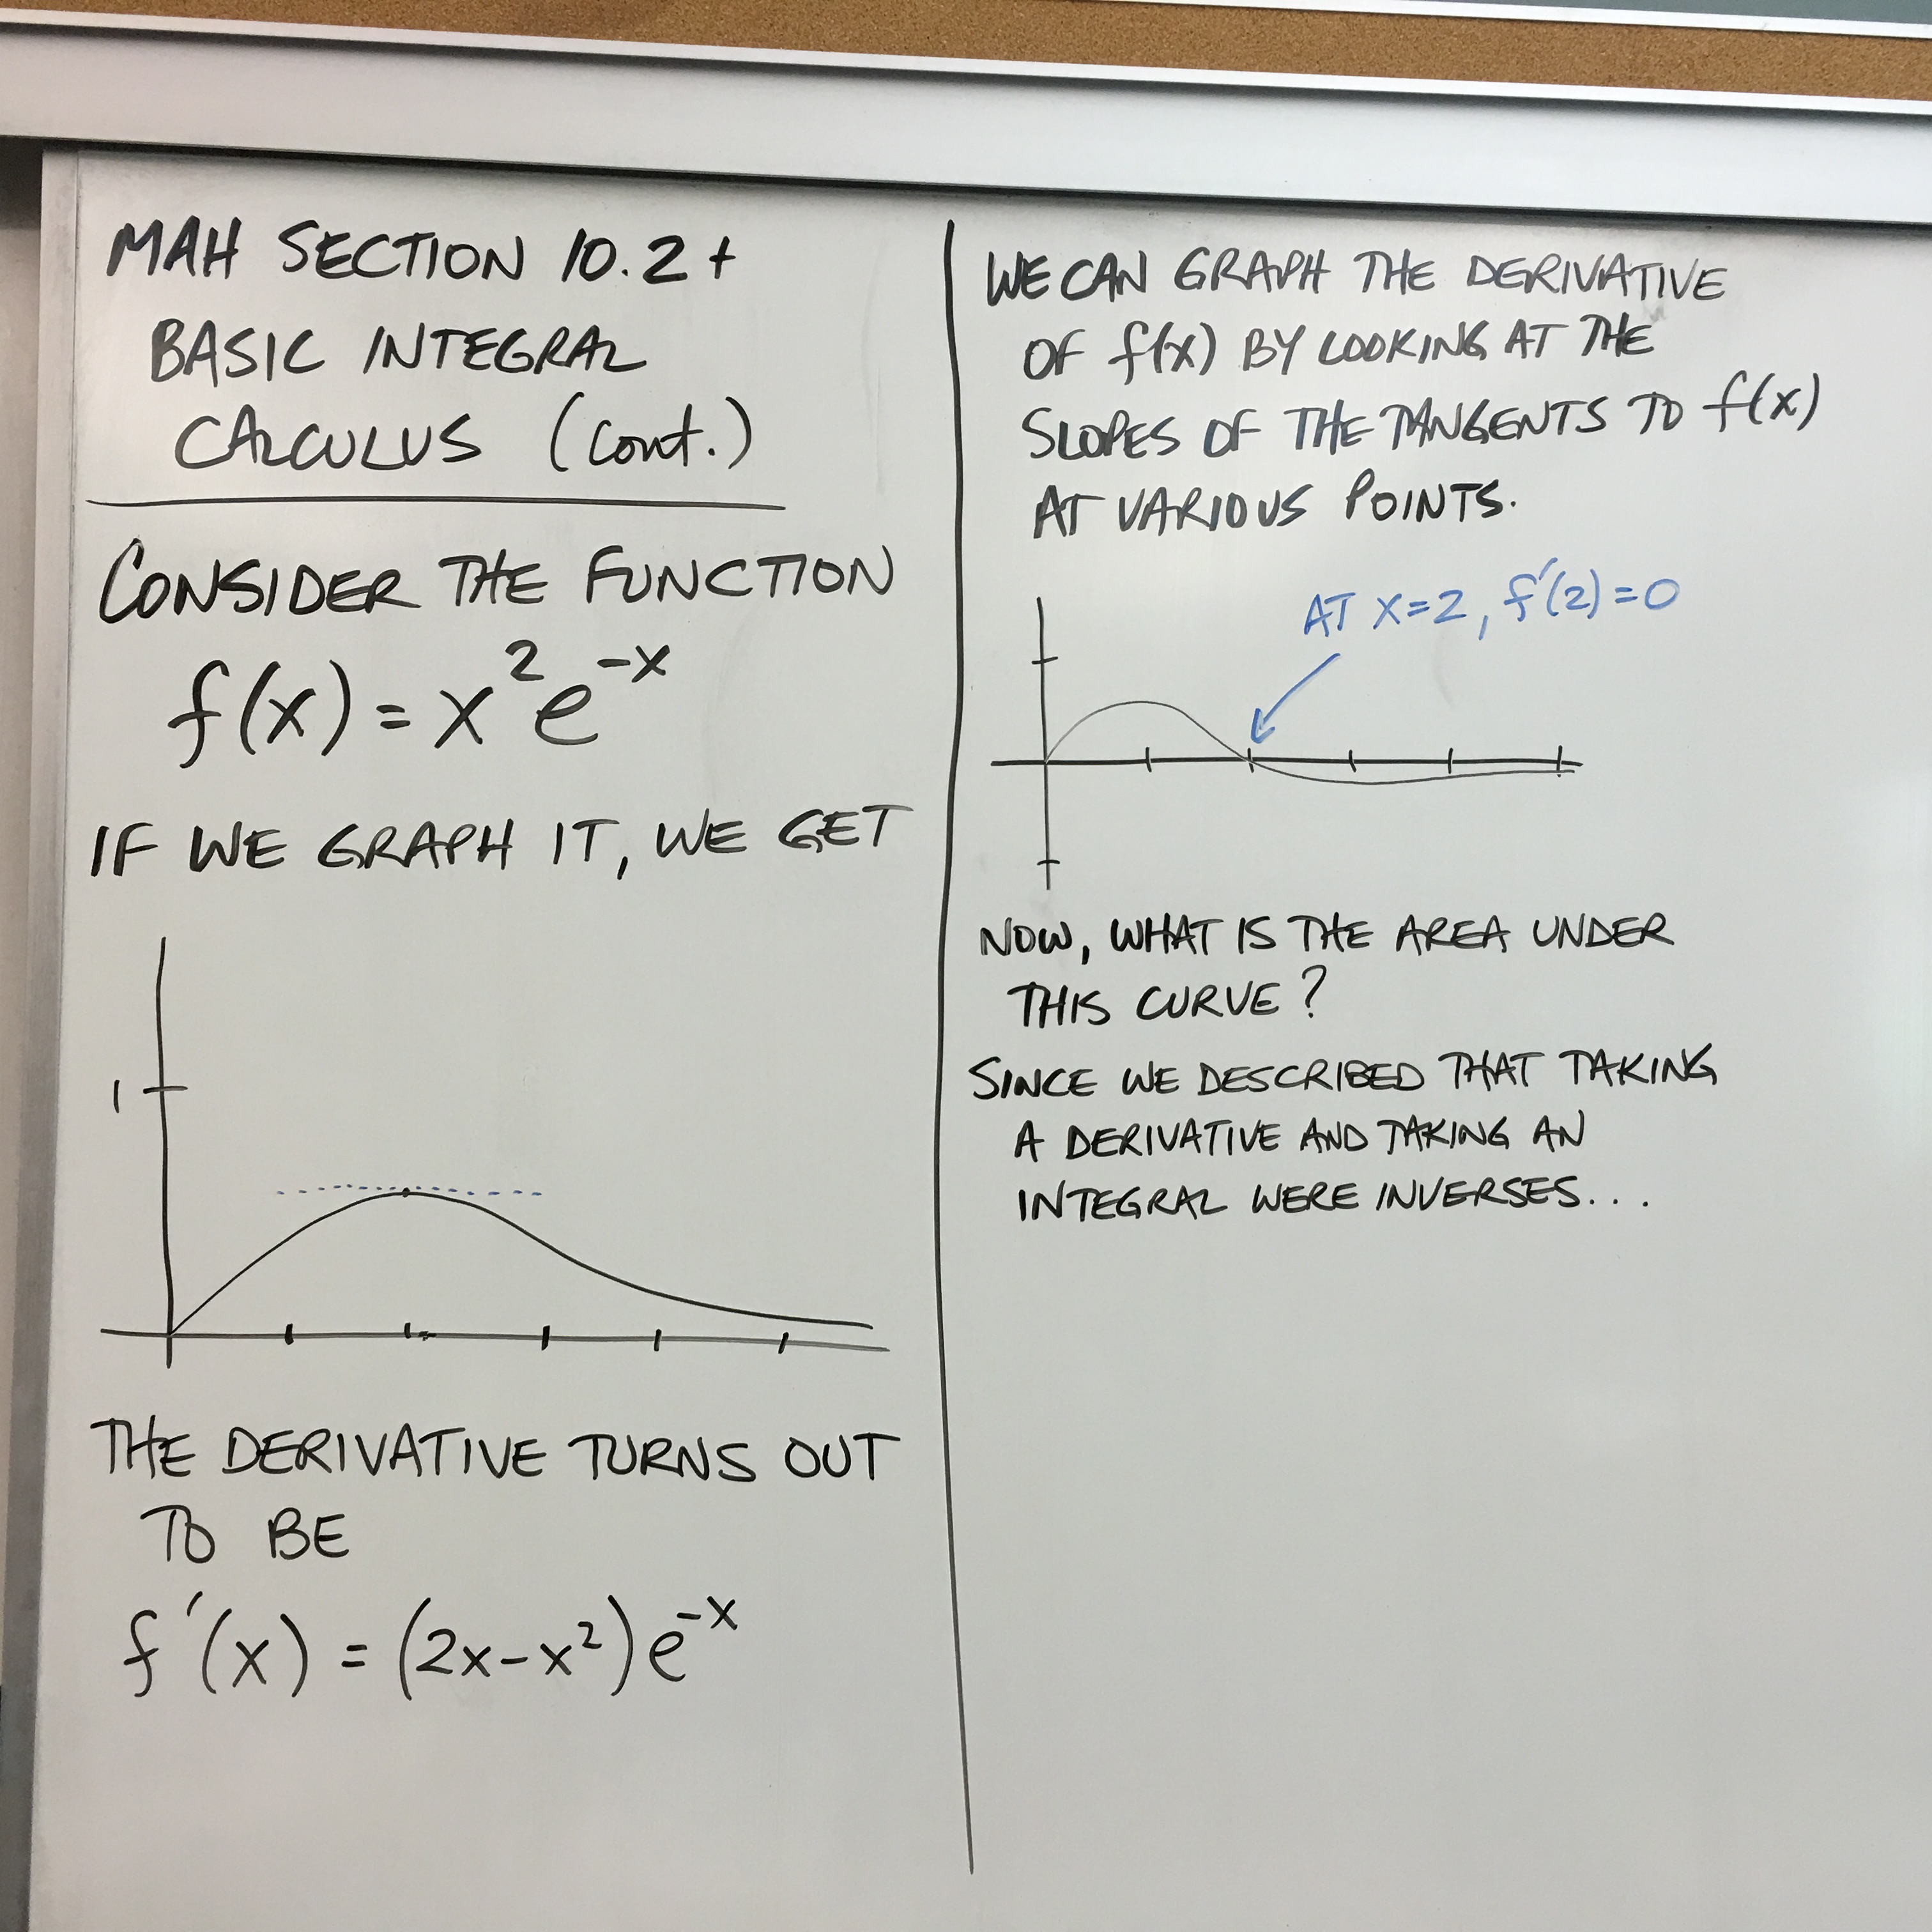 MAH SECTION 10.2+
BASIC INTEGRAL
CALCULUS (cont.)
CONSIDER THE FUNCTION
f(x) = x²e⁻ˣ
IF WE GRAPH IT, WE GET
1
THE DERIVATIVE TURNS OUT
TO BE
f′(x) = (2x-x²)e⁻ˣ
WE CAN GRAPH THE DERIVATIVE
OF f(x) BY LOOKING AT THE
SLOPES OF THE TANGENTS TO f(x)
AT VARIOUS POINTS.
AT x=2, f′(2)=0
NOW, WHAT IS THE AREA UNDER
THIS CURVE?
SINCE WE DESCRIBED THAT TAKING
A DERIVATIVE AND TAKING AN
INTEGRAL WERE INVERSES...